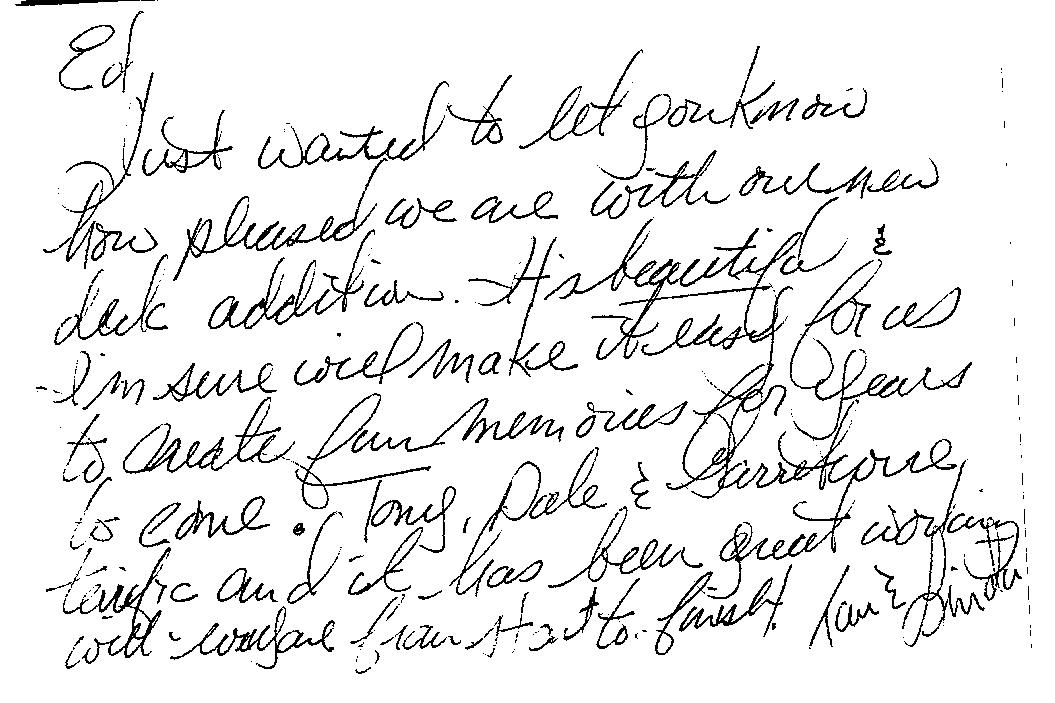 Ed,
Just wanted to let you know
how pleased we are with our new
deck addition. It's beautiful &
I'm sure will make it easy for us
to create fun memories for years
to come. Tony, Dale & Garrett were
terrific and it has been great working
with from start to finish!